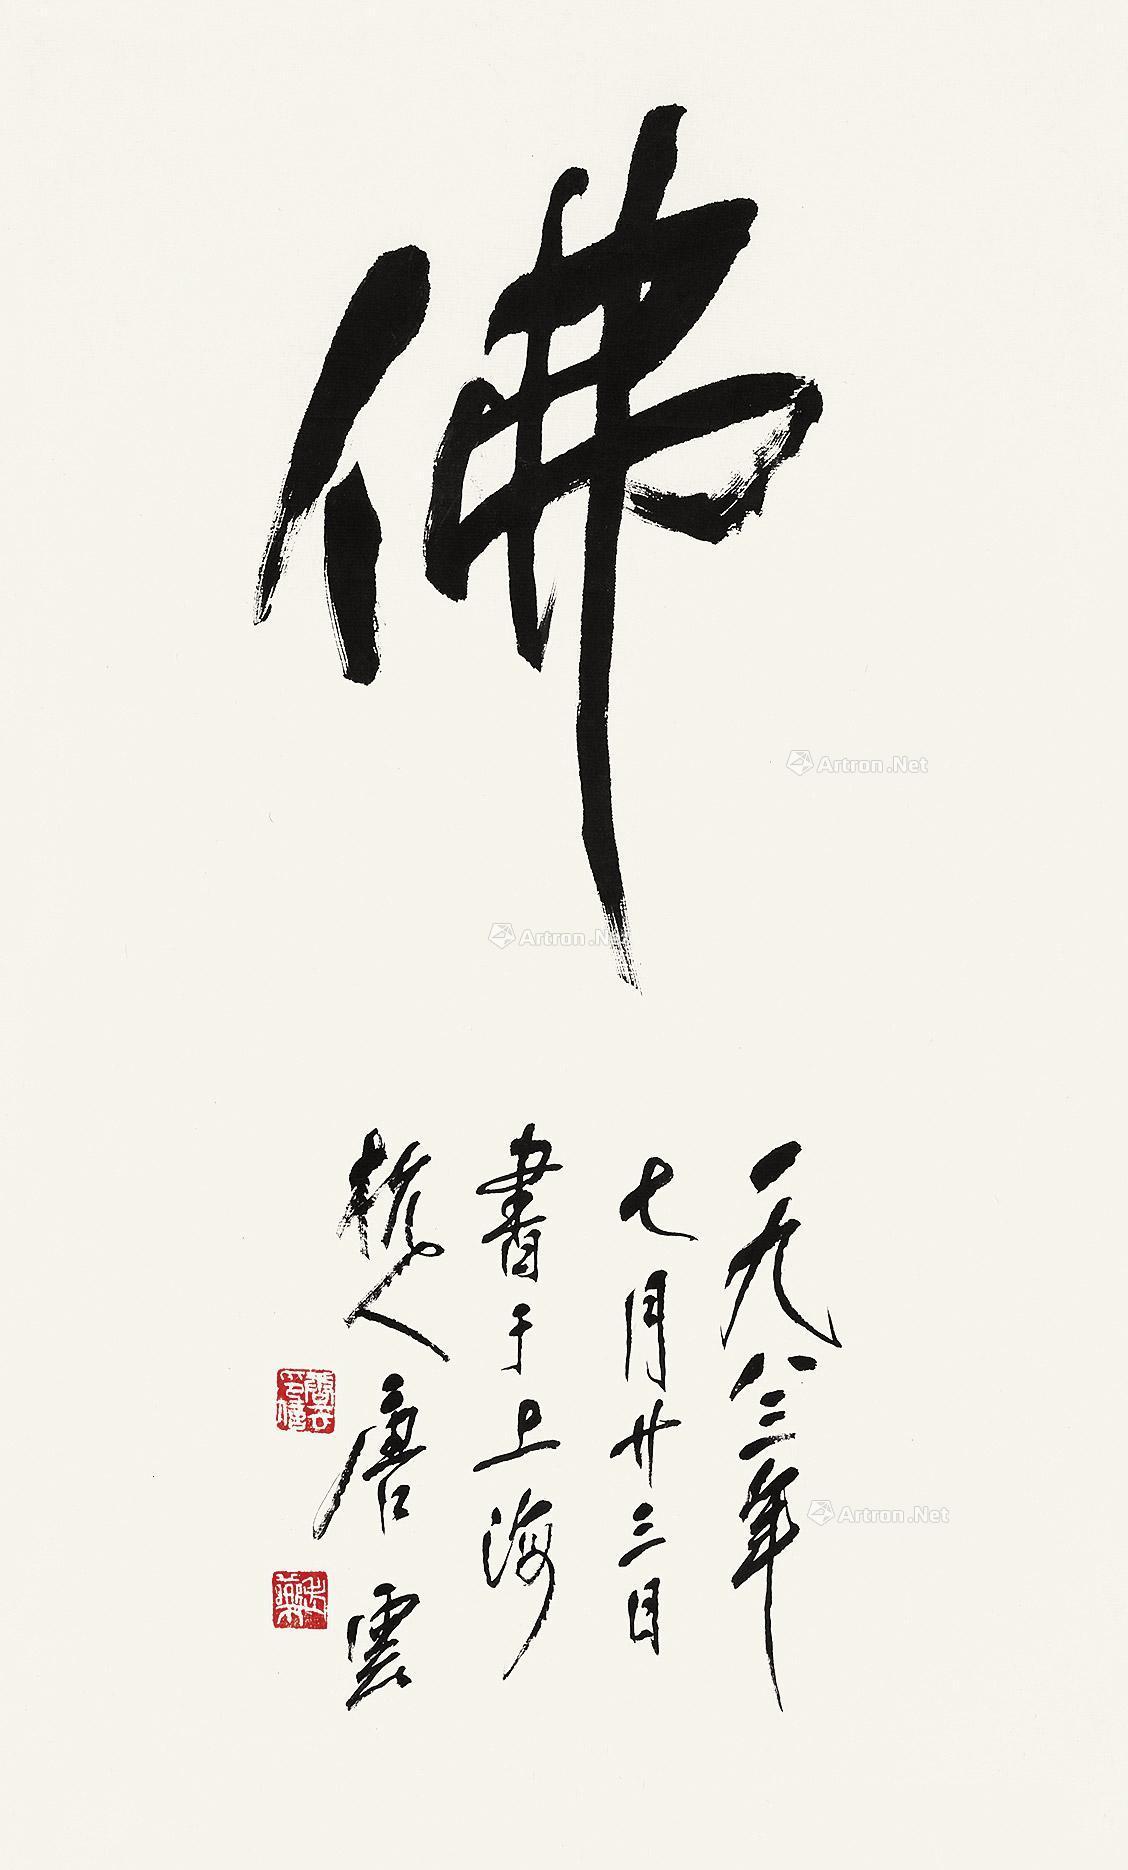 佛
一九八三年
七月廿三日
書于上海
杭人唐雲
老藥
Artron.Net
Artron.Net
Artron.Net